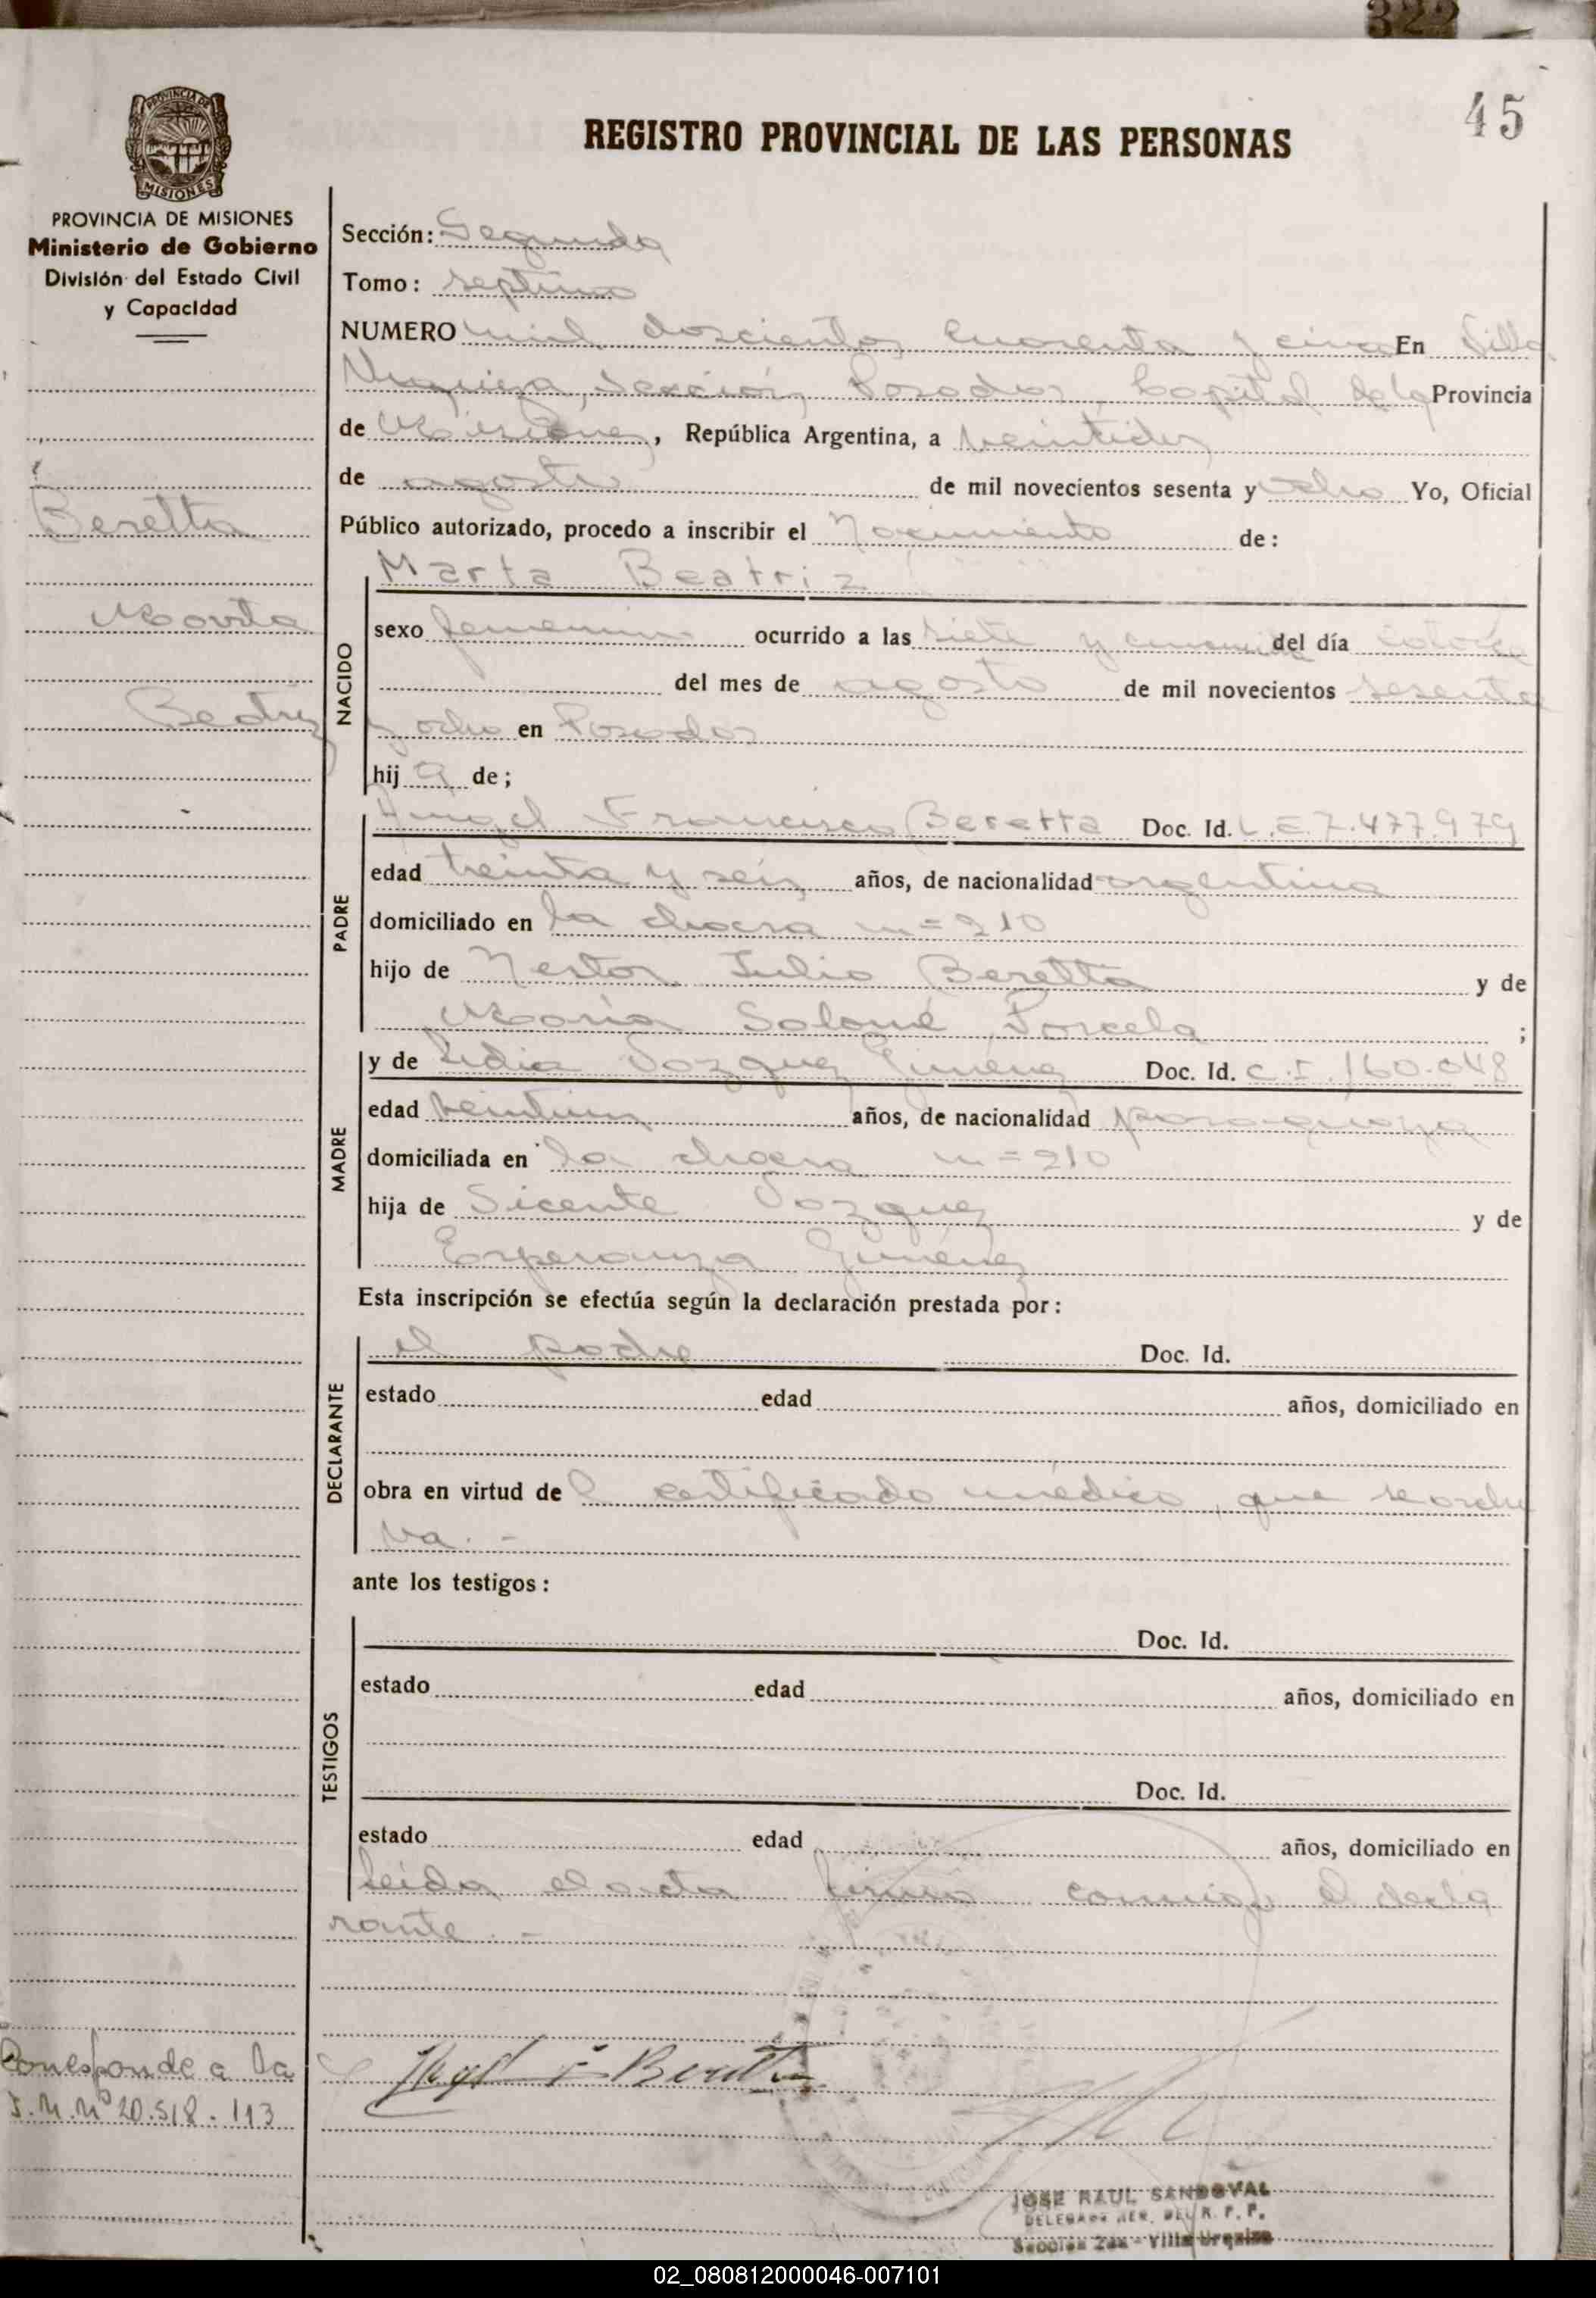 322
45
REGISTRO PROVINCIAL DE LAS PERSONAS
PROVINCIA DE MISIONES
PROVINCIA DE MISIONES
Ministerio de Gobierno
División del Estado Civil
y Capacidad
Beretta
Marta
Beatriz
Sección: Segunda
Tomo: septimo
NUMERO mil doscientos cuarenta y cinco En Villa
Urquiza, Sección Posadas, Capital de la Provincia
de Misiones, República Argentina, a veintidos
de agosto de mil novecientos sesenta y ocho Yo, Oficial
Público autorizado, procedo a inscribir el Nacimiento de:
Marta Beatriz
NACIDO
sexo femenino ocurrido a las siete y cuarenta del día catorce
del mes de agosto de mil novecientos sesenta
y ocho en Posadas
hij a de;
Angel Francisco Beretta Doc. Id. L.E. 7.477.979
PADRE
edad treinta y seis años, de nacionalidad argentina
domiciliado en la chacra n= 210
hijo de Nestor Julio Beretta y de
María Salomé Porcela ;
y de Lidia Vazquez Giménez Doc. Id. C.I. 160.048
MADRE
edad veintiun años, de nacionalidad paraguaya
domiciliada en la chacra n= 210
hija de Vicente Vazquez y de
Esperanza Giménez
Esta inscripción se efectúa según la declaración prestada por:
el padre Doc. Id.
DECLARANTE
estado edad años, domiciliado en
obra en virtud de l certificado médico, que se archi
va.-
ante los testigos:
TESTIGOS
Doc. Id.
estado edad años, domiciliado en
Doc. Id.
estado edad años, domiciliado en
Leida el acta firma conmigo el decla
rante.-
Corresponde a la
I.M. Nº 20.518.113
Angel F Beretta
JOSE RAUL SANDOVAL
DELEGADO DEL R. P. P.
Sección 2da - Villa Urquiza
02_080812000046-007101